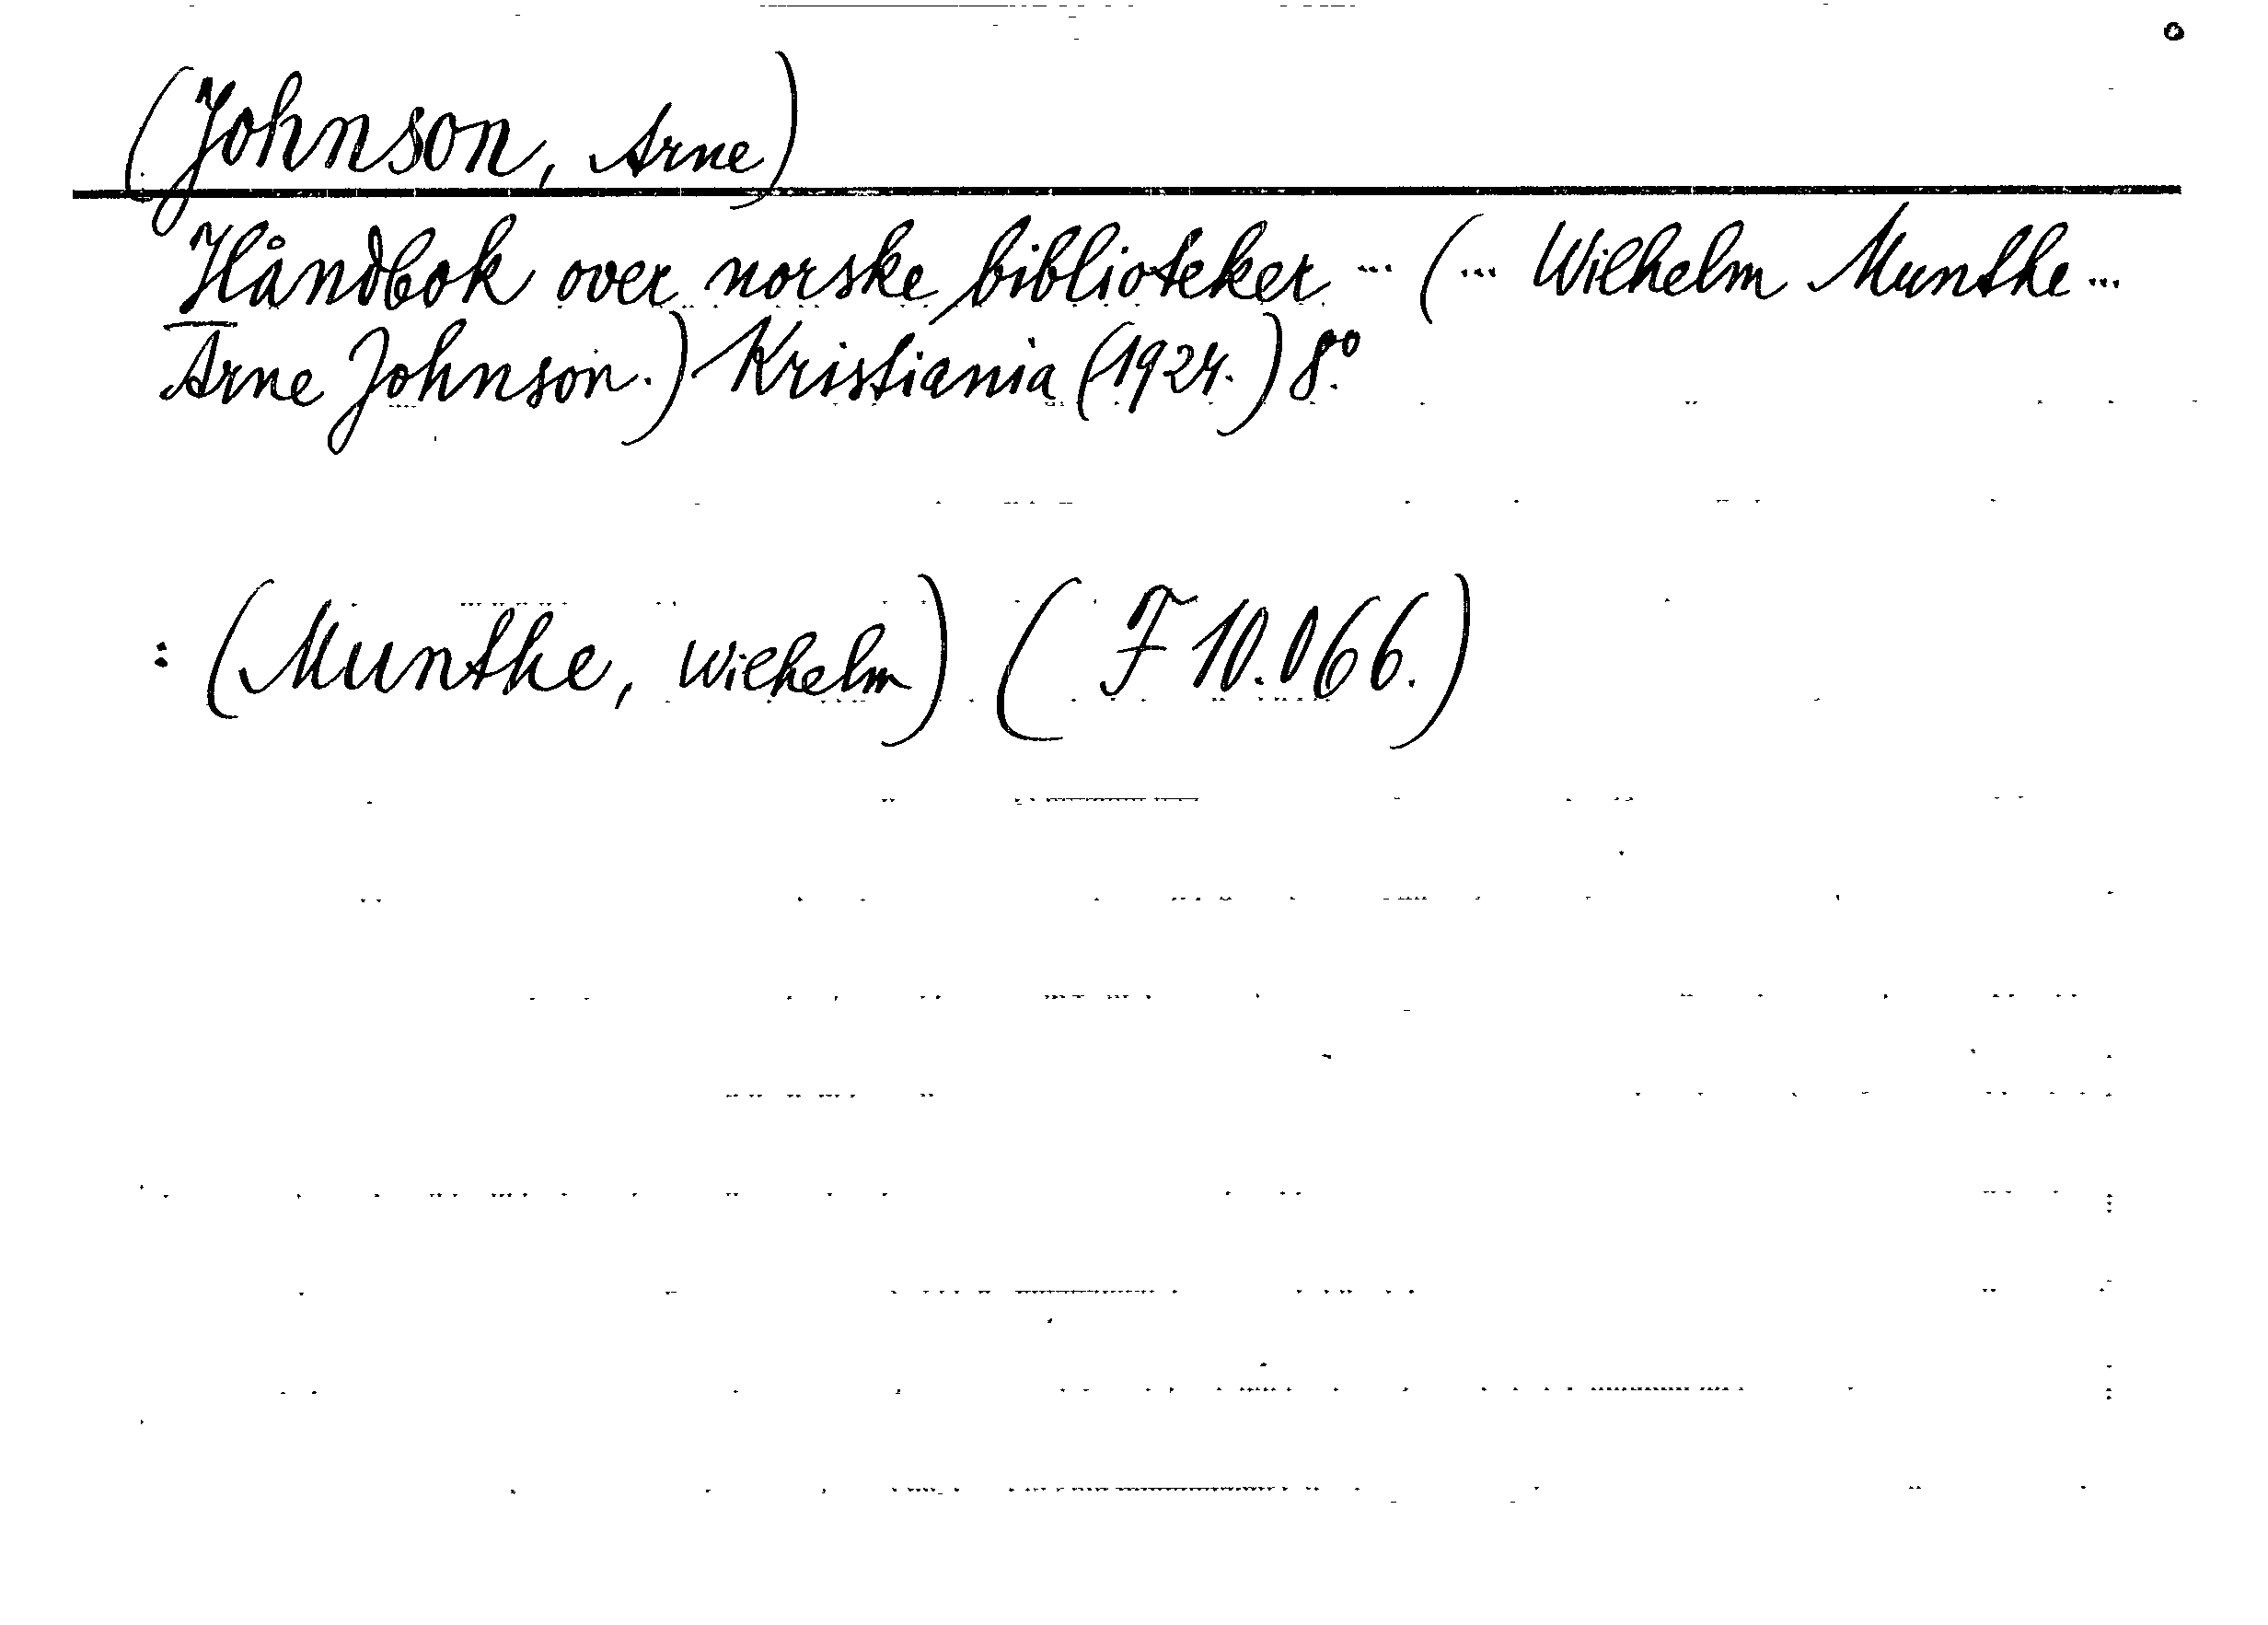 (Johnson, Arne)
Håndbok over norske biblioteker ... (... Wilhelm Munthe ...
Arne Johnson.) Kristiania (1924.) 8.º
: (Munthe, Wilhelm) (F 10.066.)